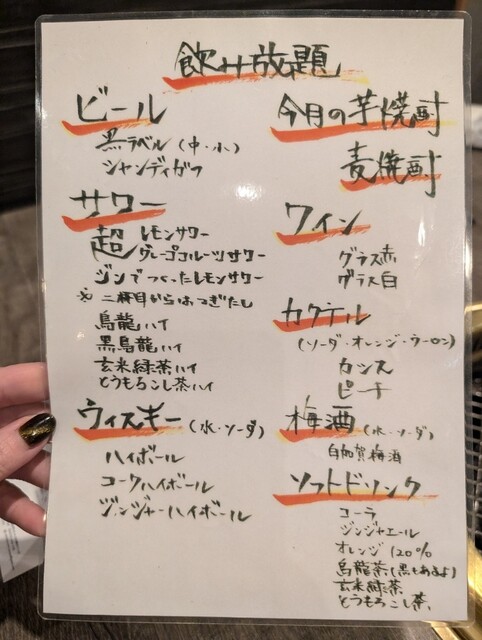 飲み放題
ビール
黒ラベル(中・小)
シャンディガフ
サワー
超 レモンサワー
グレープフルーツサワー
ジンでつくったレモンサワー
※二杯目からはつぎたし
烏龍ハイ
黒烏龍ハイ
玄米緑茶ハイ
とうもろこし茶ハイ
ウィスキー(水・ソーダ)
ハイボール
コークハイボール
ジンジャーハイボール
今月の芋焼酎
麦焼酎
ワイン
グラス赤
グラス白
カクテル
(ソーダ・オレンジ・ウーロン)
カシス
ピーチ
梅酒(水・ソーダ)
白加賀梅酒
ソフトドリンク
コーラ
ジンジャエール
オレンジ120%
烏龍茶(黒もあるよ)
玄米緑茶
とうもろこし茶